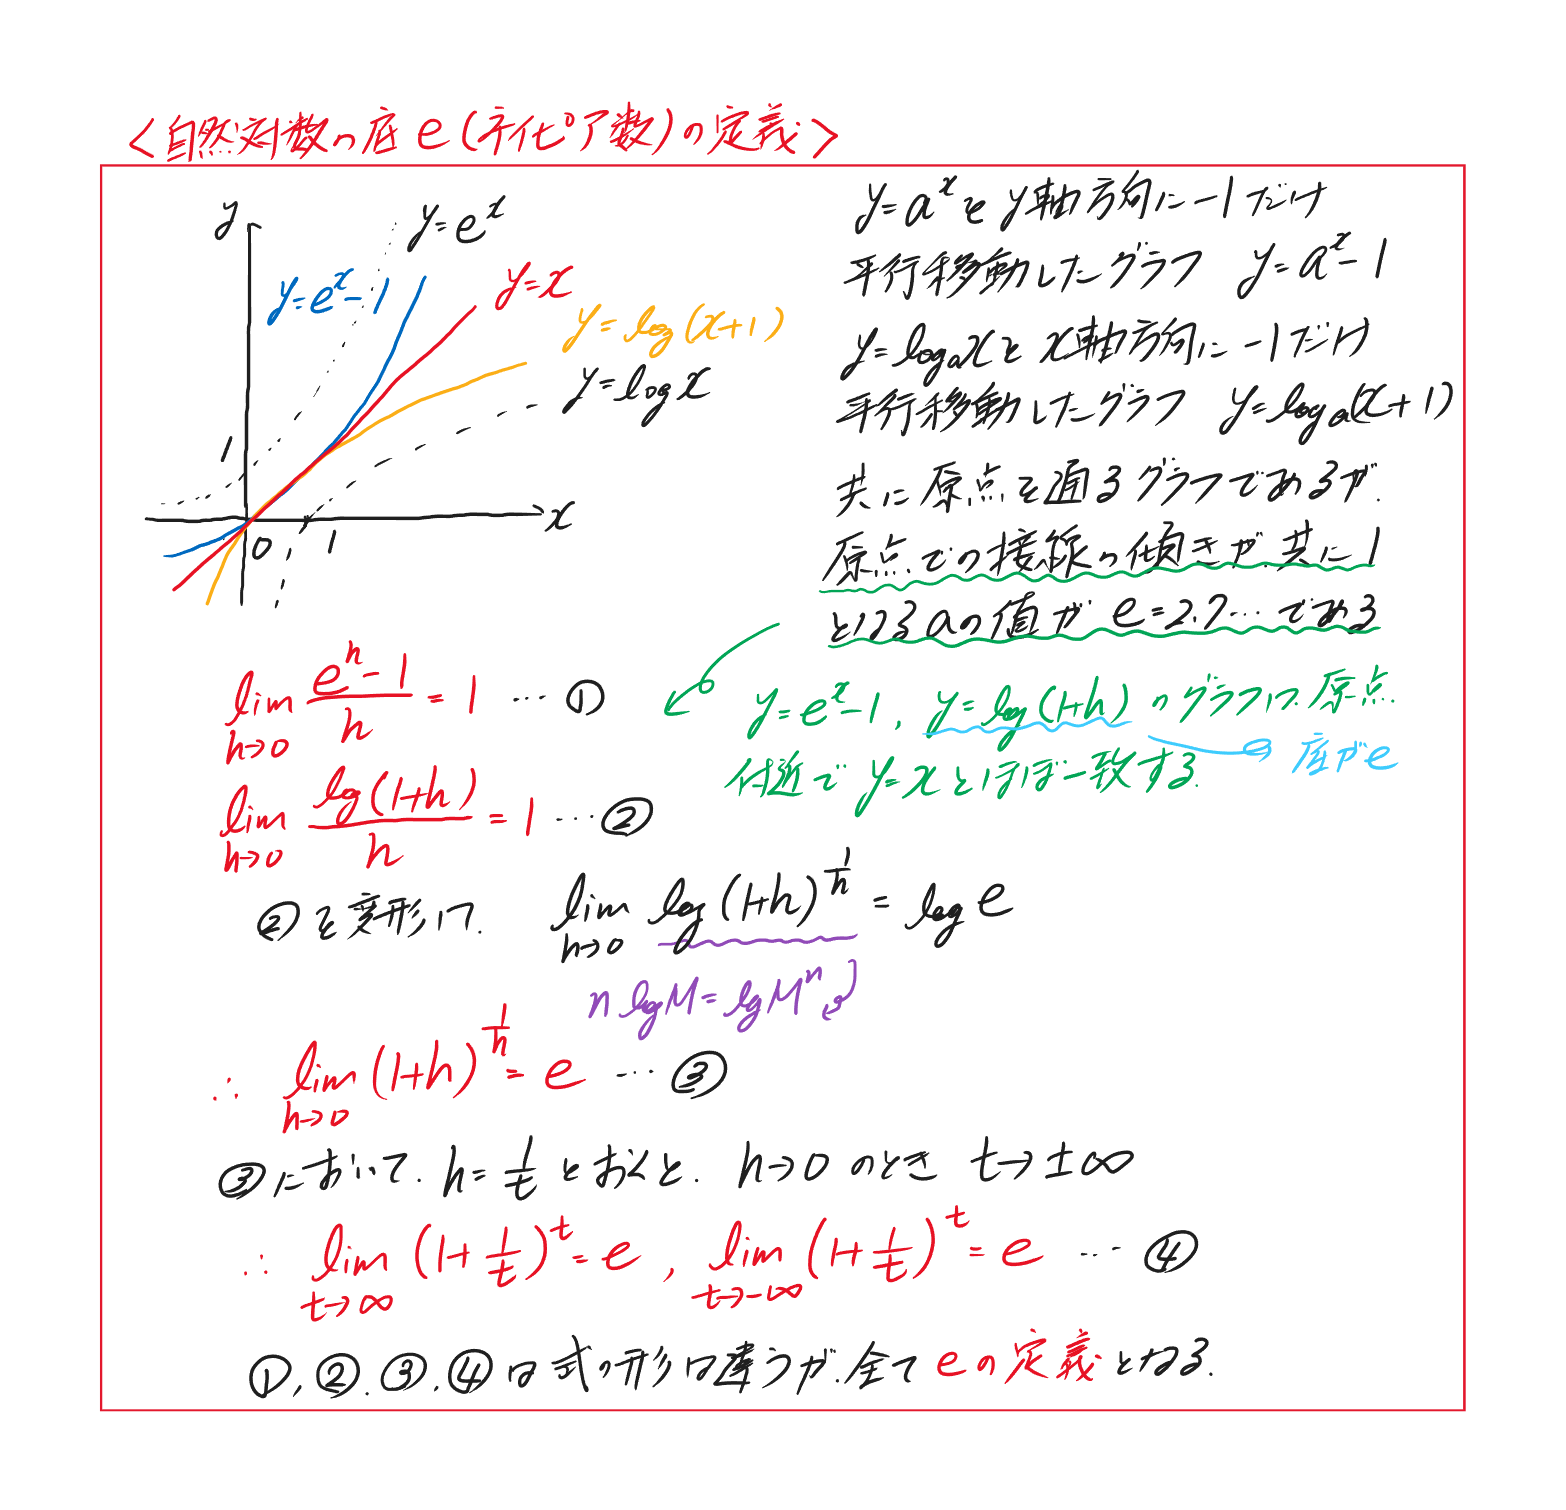 <自然対数の底 e (ネイピア数)の定義>
y
y=e^x
y=e^x-1
y=x
y=log(x+1)
y=log x
1
0
1
x
y=a^xをy軸方向に-1だけ
平行移動したグラフ y=a^x-1
y=log_a xをx軸方向に-1だけ
平行移動したグラフ y=log_a(x+1)
共に原点を通るグラフであるが、
原点での接線の傾きが、共に1
となるaの値が e=2.7…である
y=e^x-1, y=log(1+h)のグラフは、原点
付近で y=xとほぼ一致する。
底がe
lim_{h→0} (e^h-1)/h = 1 … ①
lim_{h→0} log(1+h)/h = 1 … ②
②を変形して、 lim_{h→0} log(1+h)^{1/h} = log e
n log M = log M^n
∴ lim_{h→0} (1+h)^{1/h} = e … ③
③において、h=1/t とおくと、h→0 のとき t→±∞
∴ lim_{t→∞} (1+1/t)^t = e , lim_{t→-∞} (1+1/t)^t = e … ④
①, ②, ③, ④は式の形は違うが、全てeの定義となる。